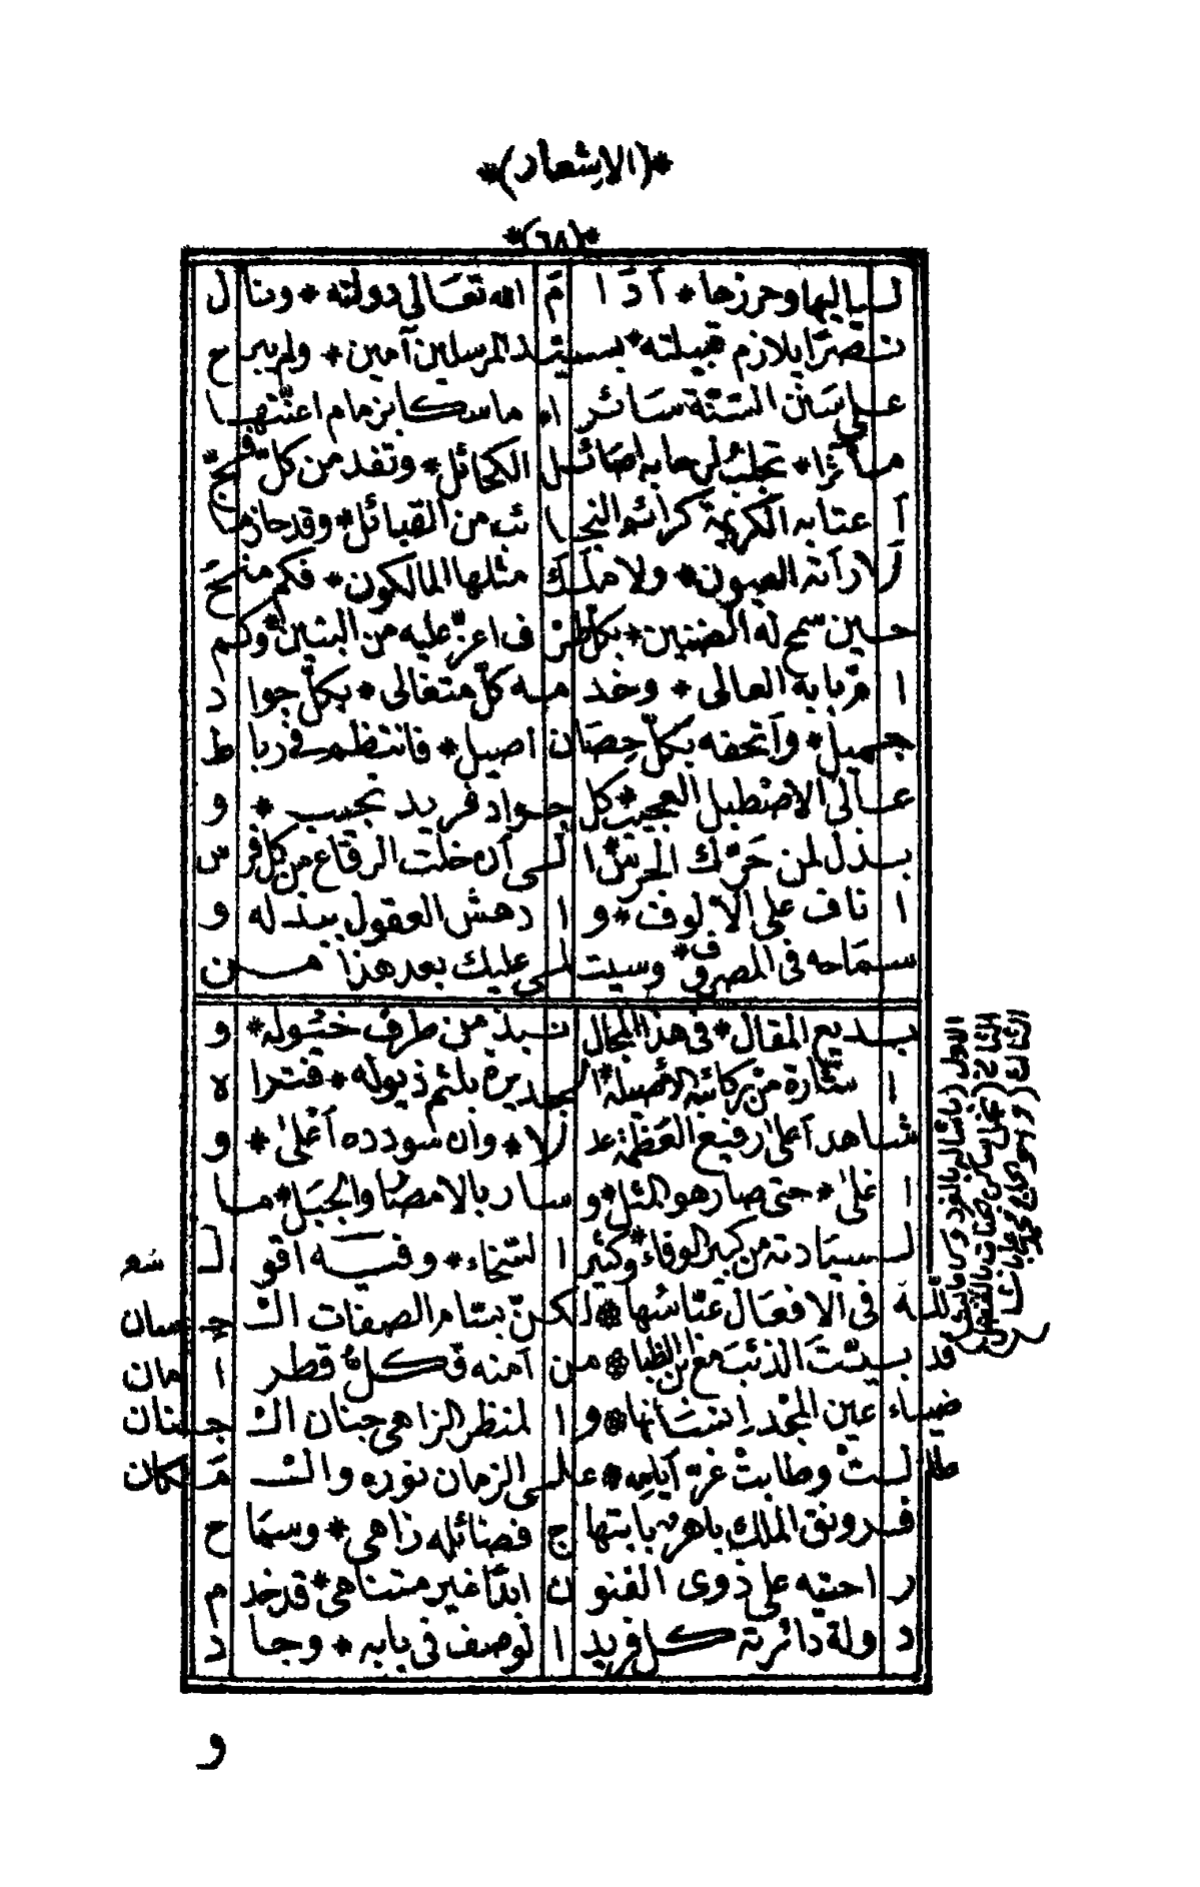 *(الاشعار)*
*(٦٨)*
لياليها وحرزها * أدام الله تعالى دولته * ونال
نصرا يلازم قبيلته * بسيد المرسلين آمين * ولم يبرح
على سنن السنة سائرا * ماسكا بزمام اعنتها
مآثرا * تجلب لرحابه اصائل الكحائل * وتفد من كل فج
أعتابه الكريمة كرائم النجائب من القبائل * وقد حاز ما
لا رأته العيون * ولا ملك مثلها المالكون * فكم منح
حين سمح له الضنين * بكل طرف اعز عليه من البنين * وكم
امّ بابه العالى * وخدمه كل متغالى * بكل جواد
جميل * وأتحفه بكل حصان اصيل * فانتظم فى رباط
عالى الاصطبل العجيب * كل جواد فريد نجيب * و
بذل لمن حرّك الحرش الى أن خلت الرقاع من كل فرس
اناف على الالوف * وادهش العقول ببذله و
سماحه فى المصروف * وسيتلى عليك بعد هذا من
بديع المقال * فى هذا المجال نبذ من طرف خيوله * و
اشارة من بركائبه الاصيلة الجديرة بلثم ذيوله * فتراه
شاهد أعلى رفيع العظمة عدلا * وان سودده أغلى * و
اغلى * حتى صار هو المثل * وسار بالامصار والجبل * ما
لسيادته من كبير الوفاء * وكثير السخاء * وفيه اقول شعر
لله فى الافعال عنا شها * لكن بسام الصفات الحسان
قد بيّتت الذئب مع ابن الظبا * من آمنه فى كل قطر امان
ضياء عين المجد إنسانها * والمنظر الزاهى جنان الجنان
طالت وطابت غرّ أيامه * على الزمان نوره والمكان
فرونق الملك باهر به بابتهاج فضائله زاهى * وسماح
راحته على ذوى الفنون ابدا غير متناهى * قد خدم
دولة دائرته كل فريد الوصف فى بابه * وجاد
و